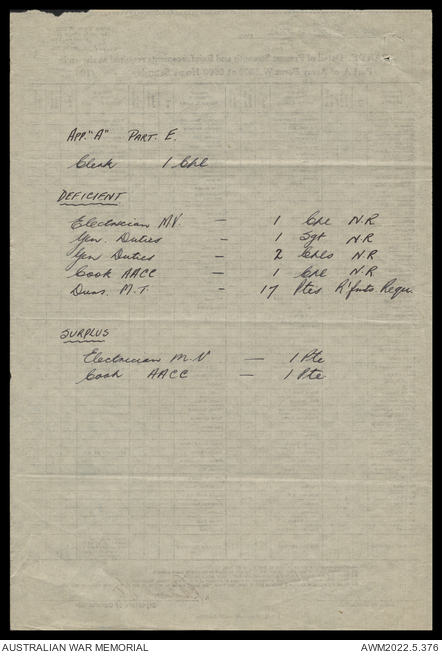 App. "A" Part. E.
Clerk 1 Cpl
DEFICIENT
Electrician M.V. — 1 Cpl N.R
Gen. Duties — 1 Sgt N.R
Gen Duties — 2 Cpls N.R
Cook AACC — 1 Cpl N.R
Dvrs. M.T. — 17 Ptes R'fmts Requ.
SURPLUS
Electrician M.V — 1 Pte
Cook AACC — 1 Pte
AUSTRALIAN WAR MEMORIAL AWM2022.5.376